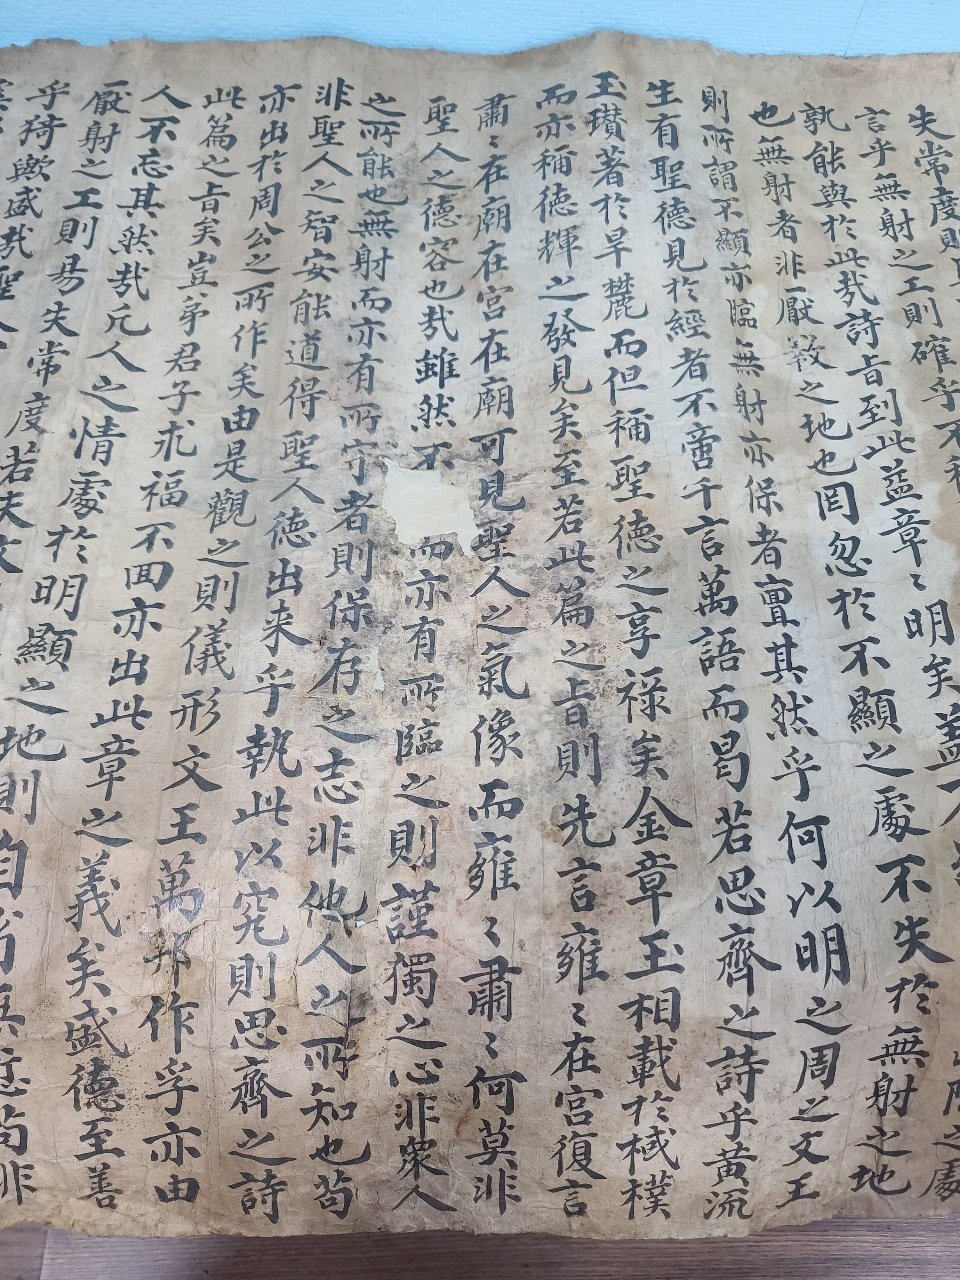 失常度則
言乎無射之工則確乎不
孰能與於此哉詩旨到此益章〻明矣蓋人
也無射者非厭斁之地也罔忽於不顯之處不失於無射之地
則所謂不顯亦臨無射亦保者亶其然乎何以明之周之文王
生有聖德見於經者不啻千言萬語而曷若思齊之詩乎黃流
玉瓚著於旱麓而但稱聖德之享祿矣金章玉相載於棫樸
而亦稱德輝之發見矣至若此篇之旨則先言雍〻在宮復言
肅〻在廟在宮在廟可見聖人之氣像而雍〻肅〻何莫非
聖人之德容也哉雖然不而亦有所臨之則謹獨之心非衆人
之所能也無射而亦有所守者則保存之志非他人之所知也苟
非聖人之智安能道得聖人德出來乎執此以究則思齊之詩
亦出於周公之所作矣由是觀之則儀形文王萬邦作孚亦由
此篇之旨矣豈弟君子求福不回亦出此章之義矣盛德至善
人不忘其然哉凡人之情處於明顯之地則
厭射之工則易失常度若夫文
乎猗歟盛哉聖